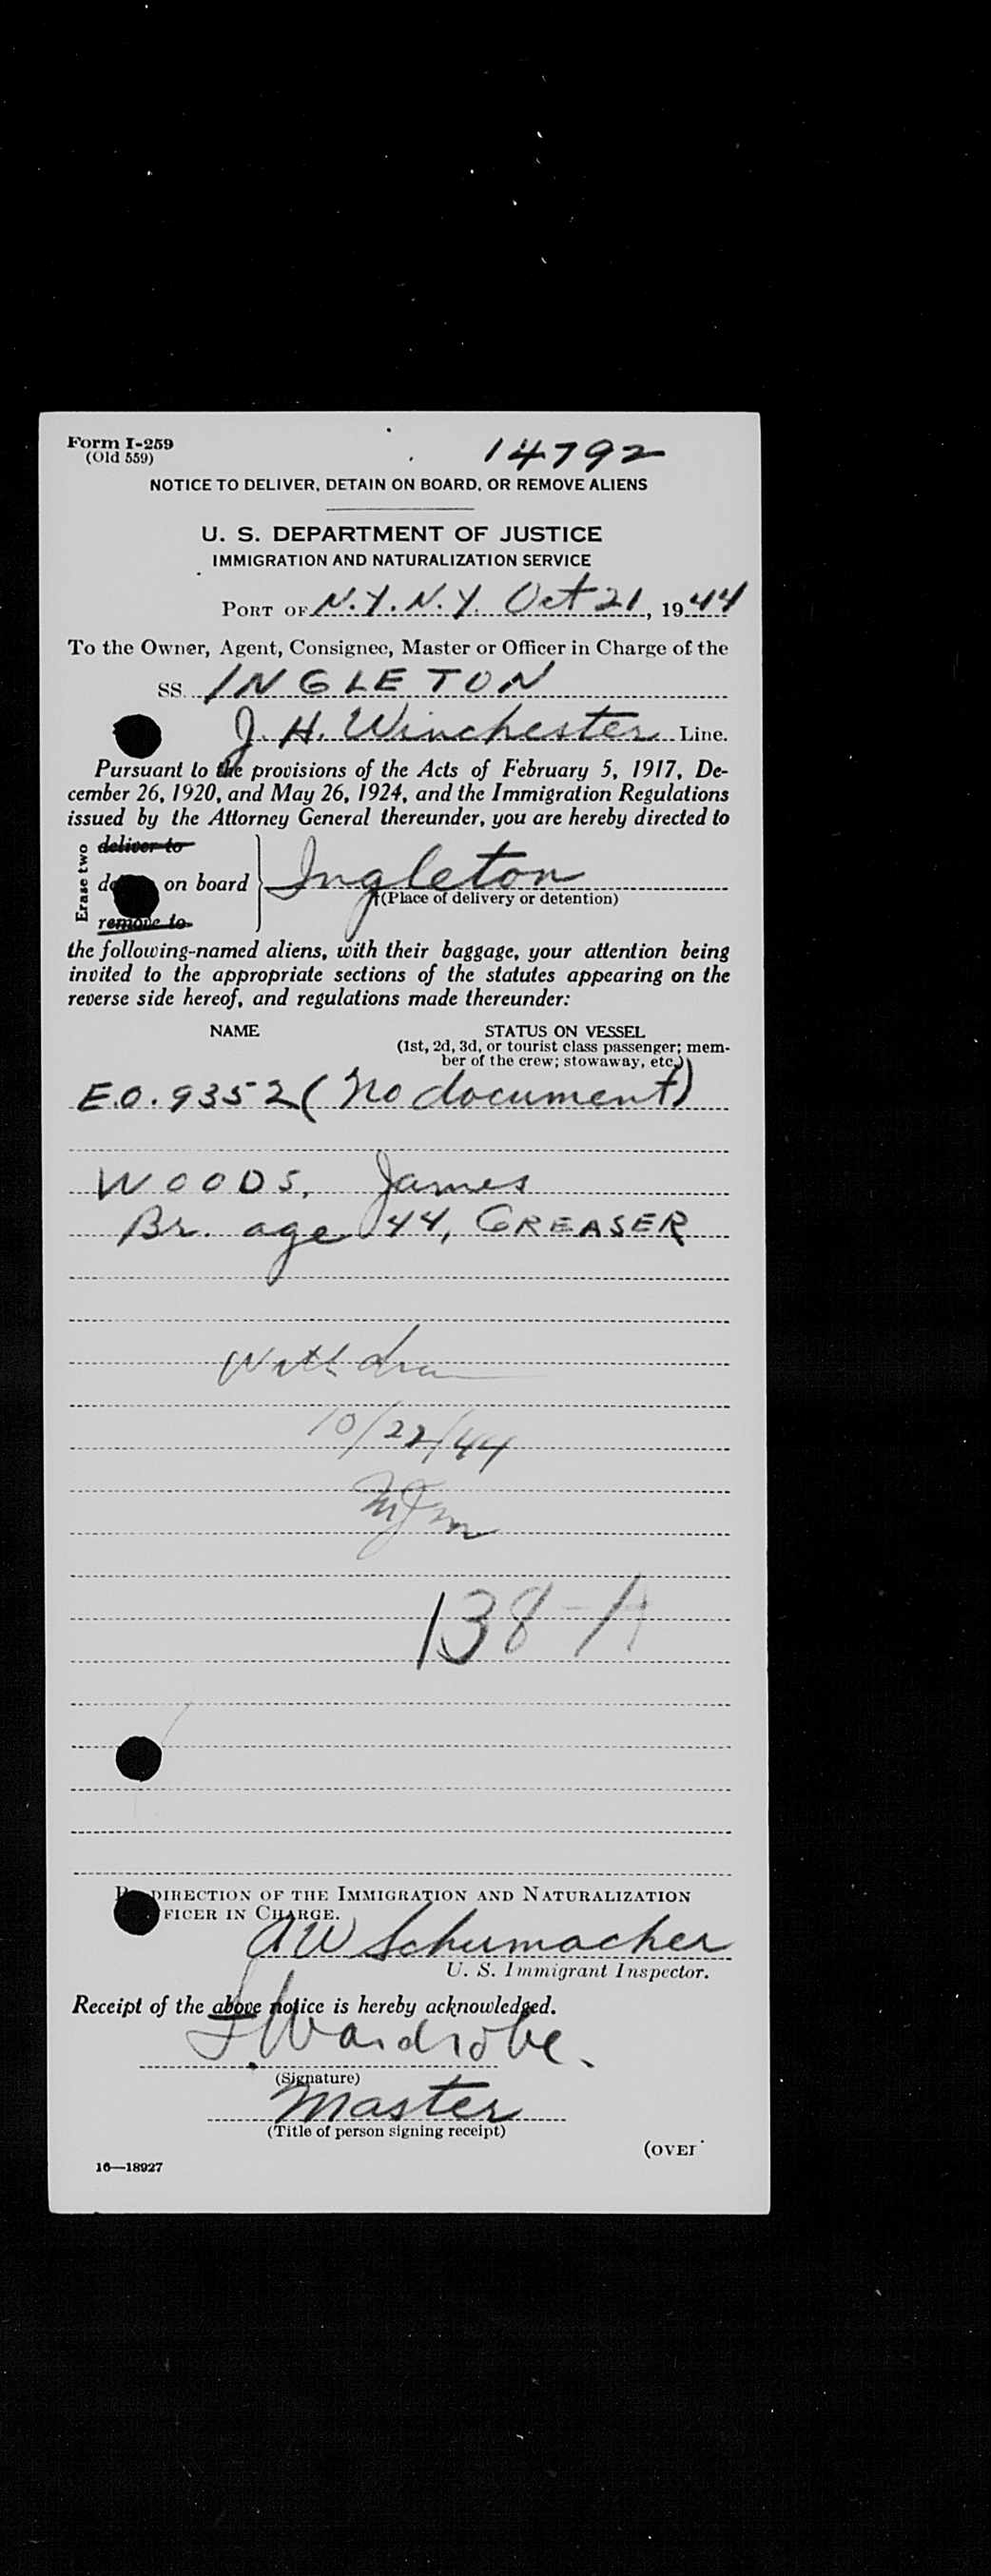 Form I-259
(Old 559)
14792
NOTICE TO DELIVER, DETAIN ON BOARD, OR REMOVE ALIENS
U. S. DEPARTMENT OF JUSTICE
IMMIGRATION AND NATURALIZATION SERVICE
PORT OF N.Y. N.Y. Oct 21, 1944
To the Owner, Agent, Consignee, Master or Officer in Charge of the
SS. INGLETON
J. H. Winchester Line.
Pursuant to the provisions of the Acts of February 5, 1917, De-
cember 26, 1920, and May 26, 1924, and the Immigration Regulations
issued by the Attorney General thereunder, you are hereby directed to
Erase two
deliver to
on board
remove to
Ingleton
(Place of delivery or detention)
the following-named aliens, with their baggage, your attention being
invited to the appropriate sections of the statutes appearing on the
reverse side hereof, and regulations made thereunder:
NAME STATUS ON VESSEL
(1st, 2d, 3d, or tourist class passenger; mem-
ber of the crew; stowaway, etc.)
E.O. 9352 (No document)
WOODS, James
Br. age 44, GREASER
10/22/44
138-A
DIRECTION OF THE IMMIGRATION AND NATURALIZATION
FICER IN CHARGE.
AW Schumacher
U. S. Immigrant Inspector.
Receipt of the above notice is hereby acknowledged.
Wardrobe.
(Signature)
Master
(Title of person signing receipt)
(OVER
16—18927